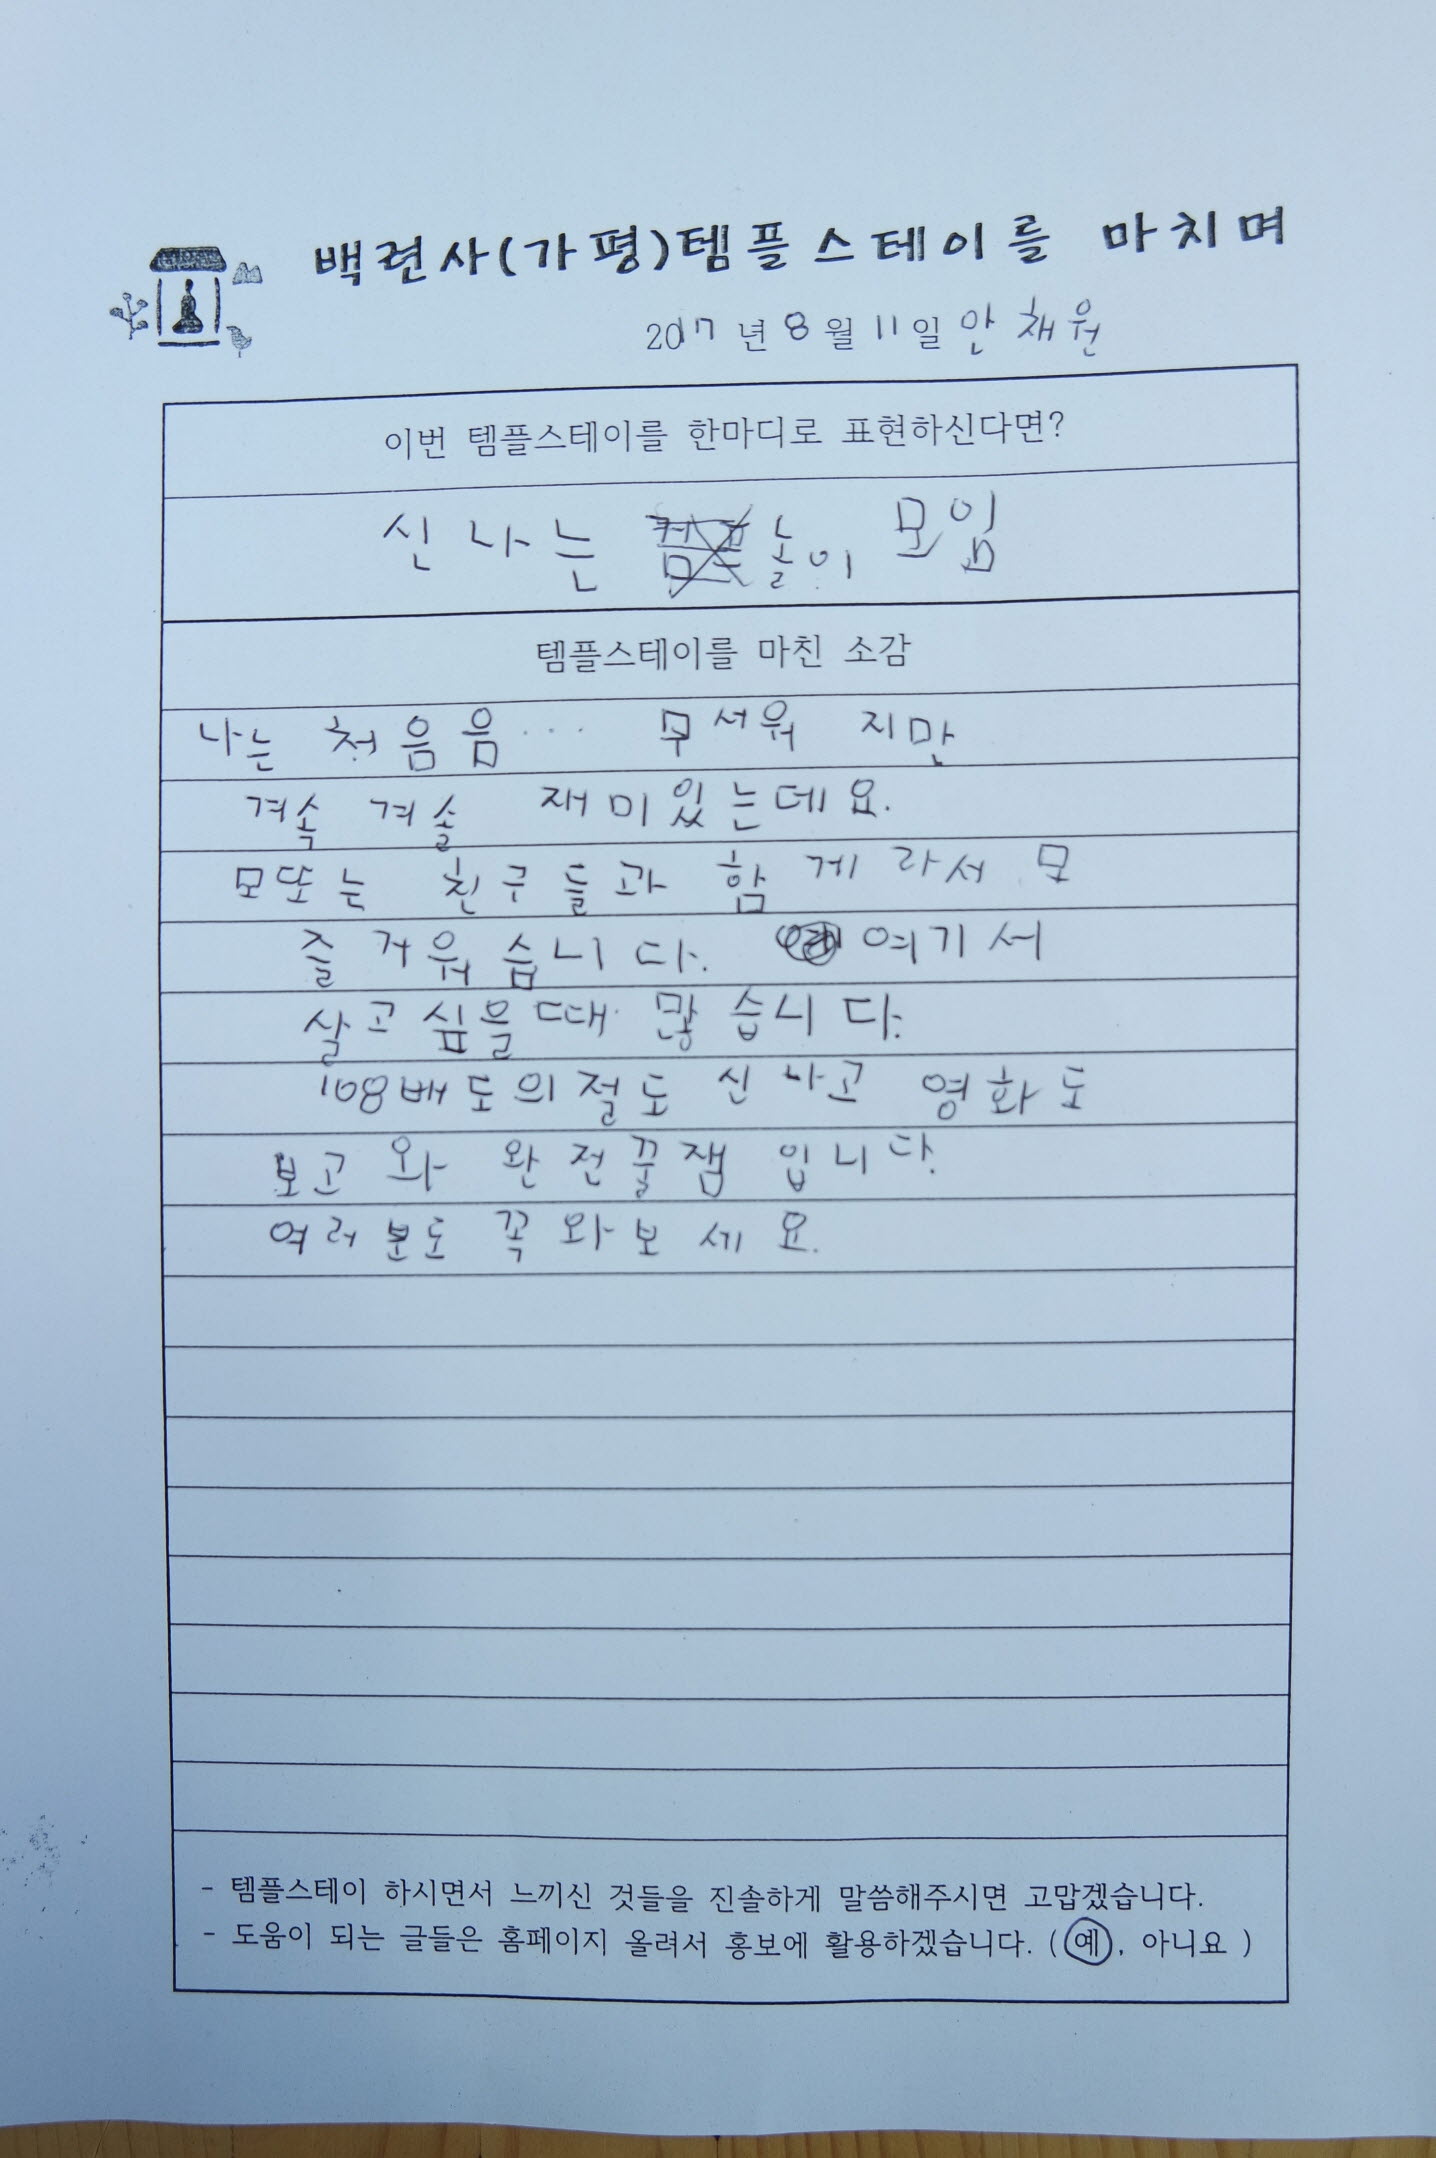 백련사(가평)템플스테이를 마치며
2017년 8월 11일 안채원
이번 템플스테이를 한마디로 표현하신다면?
신나는 놀이 모임
템플스테이를 마친 소감
나는 처음음... 무서워 지만
겨속 겨솔 재미있는데요.
모또는 친구들과 함게라서 모
즐거워습니다. 여기서
살고싶을때 많습니다.
108배도의절도 신나고 영화도
보고 와 완전꿀잼 입니다.
여러분도 꼭 와보세요.
- 템플스테이 하시면서 느끼신 것들을 진솔하게 말씀해주시면 고맙겠습니다.
- 도움이 되는 글들은 홈페이지 올려서 홍보에 활용하겠습니다. (예, 아니요)